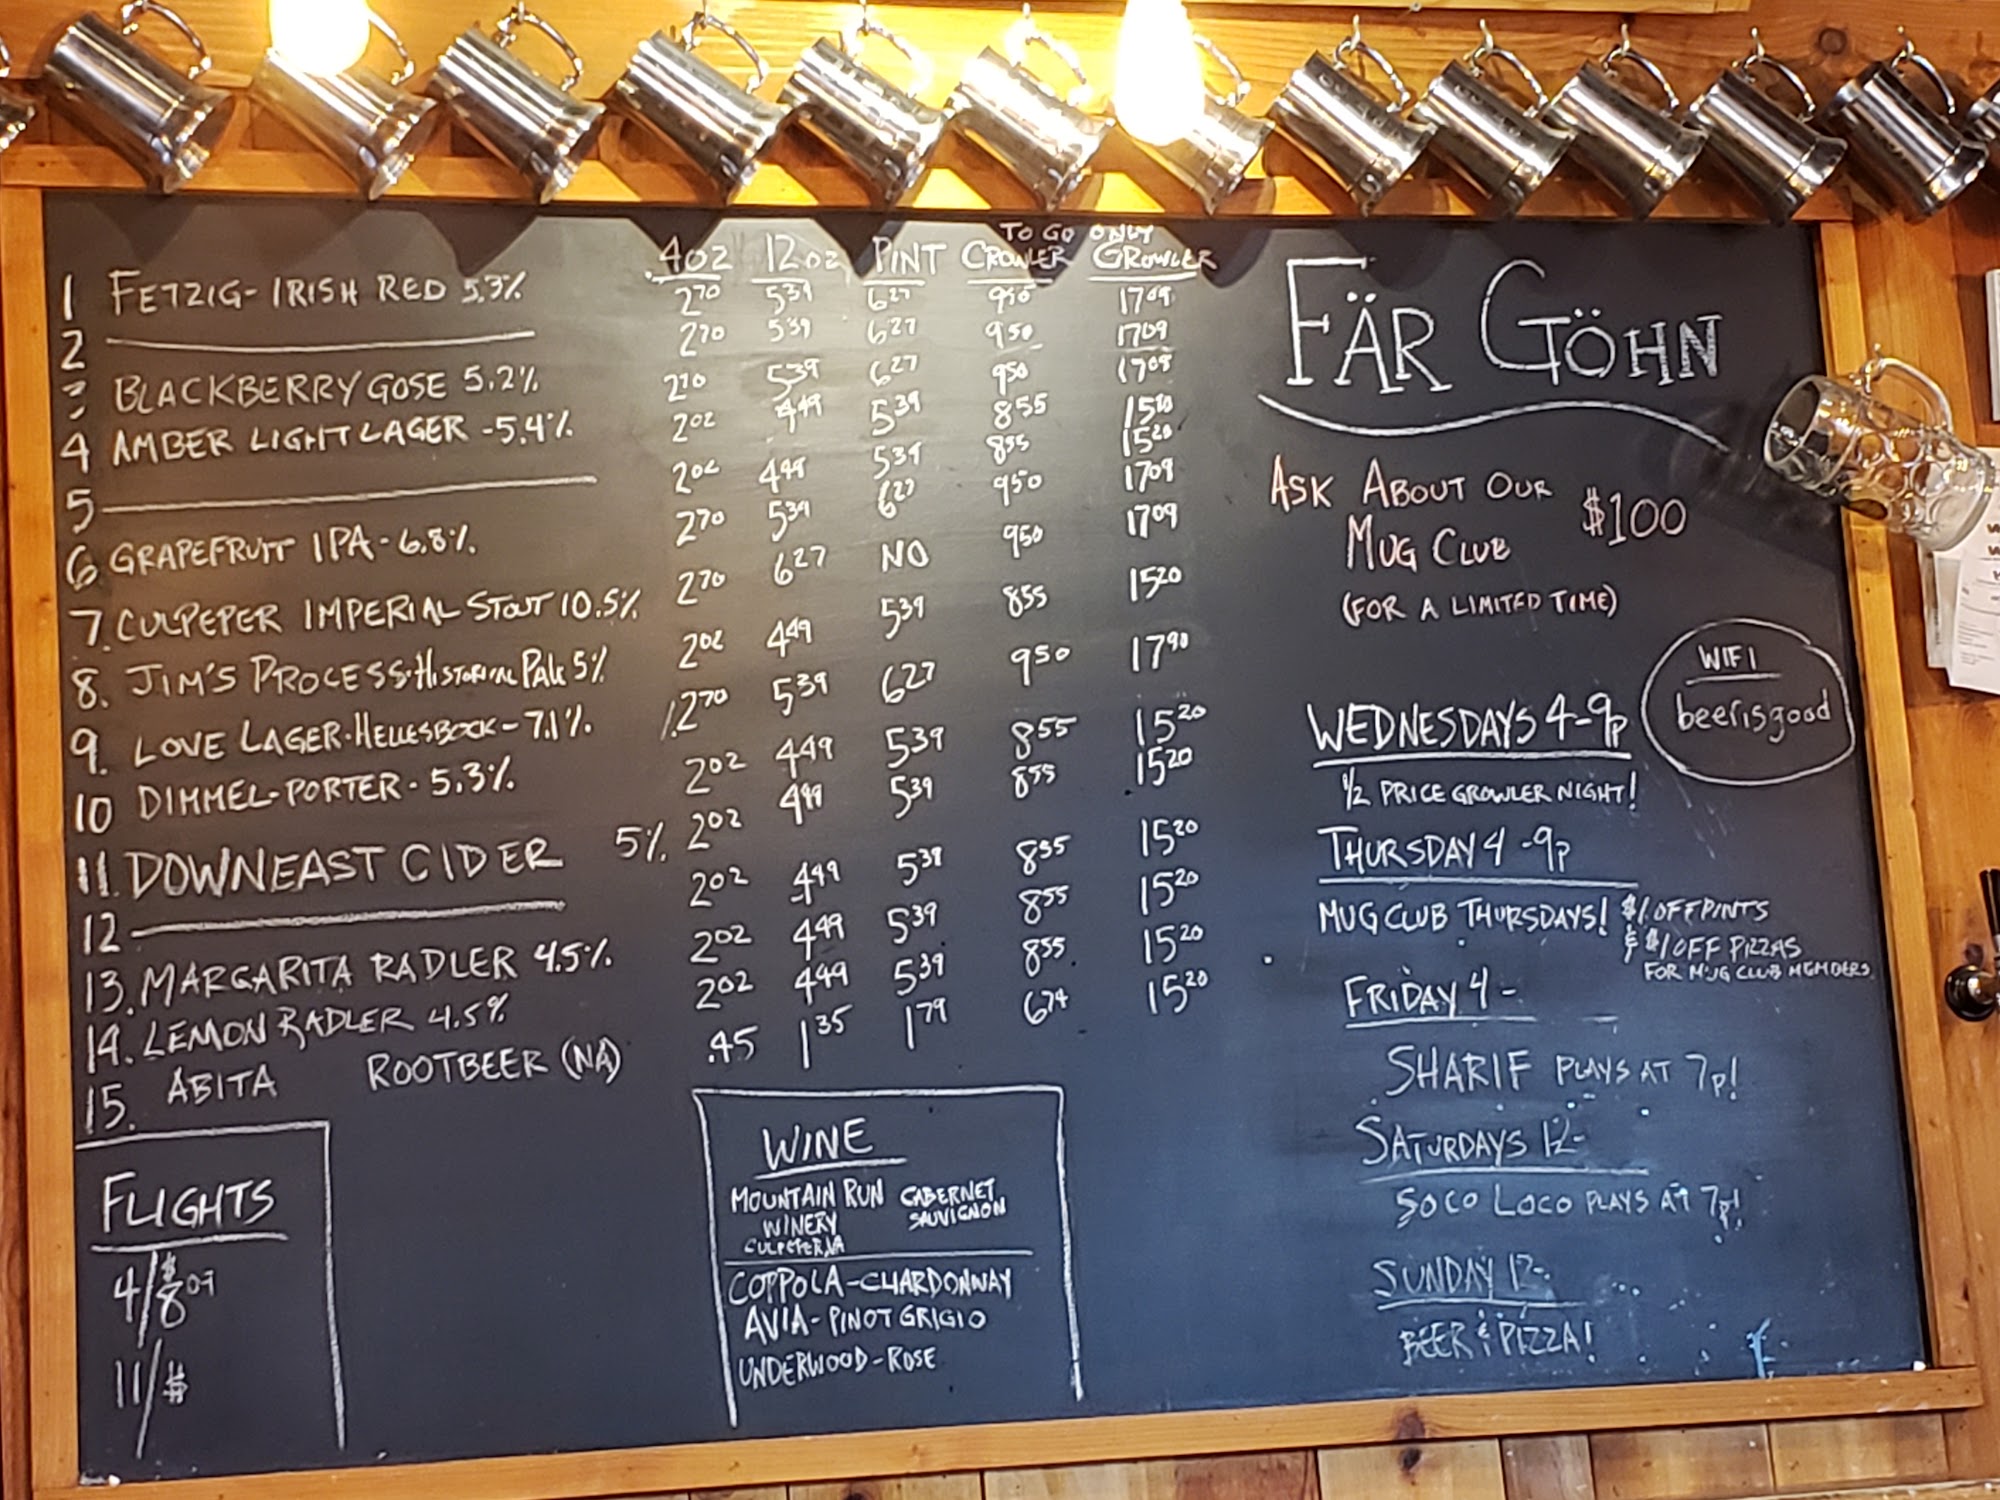 TO GO ONLY
4OZ 12OZ PINT CROWLER GROWLER
1 FETZIG - IRISH RED 5.3% 2.70 5.39 6.27 9.50 17.09
2 2.70 5.39 6.27 9.50 17.09
3 BLACKBERRY GOSE 5.2% 2.70 5.39 6.27 9.50 17.09
4 AMBER LIGHT LAGER - 5.4% 2.02 4.49 5.39 8.55 15.20
5 2.02 4.49 5.39 8.55 15.20
6 GRAPEFRUIT IPA - 6.8% 2.70 5.39 6.27 9.50 17.09
7. CULPEPER IMPERIAL STOUT 10.5% 2.70 6.27 NO 9.50 17.09
8. JIM'S PROCESS - HISTORICAL PALE 5% 2.02 4.49 5.39 8.55 15.20
9. LOVE LAGER - HELLESBOCK - 7.1% 2.70 5.39 6.27 9.50 17.90
10 DIMMEL - PORTER - 5.3% 2.02 4.49 5.39 8.55 15.20
11. DOWNEAST CIDER 5% 2.02 4.49 5.39 8.55 15.20
12 2.02 4.49 5.39 8.55 15.20
13. MARGARITA RADLER 4.5% 2.02 4.49 5.39 8.55 15.20
14. LEMON RADLER 4.5% 2.02 4.49 5.39 8.55 15.20
15. ABITA ROOTBEER (NA) .45 1.35 1.79 6.74 15.20
FLIGHTS
4/$8.09
11/$
WINE
MOUNTAIN RUN CABERNET
WINERY SAUVIGNON
CULPEPER, VA
COPPOLA - CHARDONNAY
AVIA - PINOT GRIGIO
UNDERWOOD - ROSE
FÄR GÖHN
ASK ABOUT OUR $100
MUG CLUB
(FOR A LIMITED TIME)
WIFI
beerisgood
WEDNESDAYS 4-9p
1/2 PRICE GROWLER NIGHT!
THURSDAY 4-9p
MUG CLUB THURSDAYS! $1 OFF PINTS
& $1 OFF PIZZAS
FOR MUG CLUB MEMBERS
FRIDAY 4-
SHARIF PLAYS AT 7p!
SATURDAYS 12-
SOCO LOCO PLAYS AT 7p!
SUNDAY 12-
BEER & PIZZA!